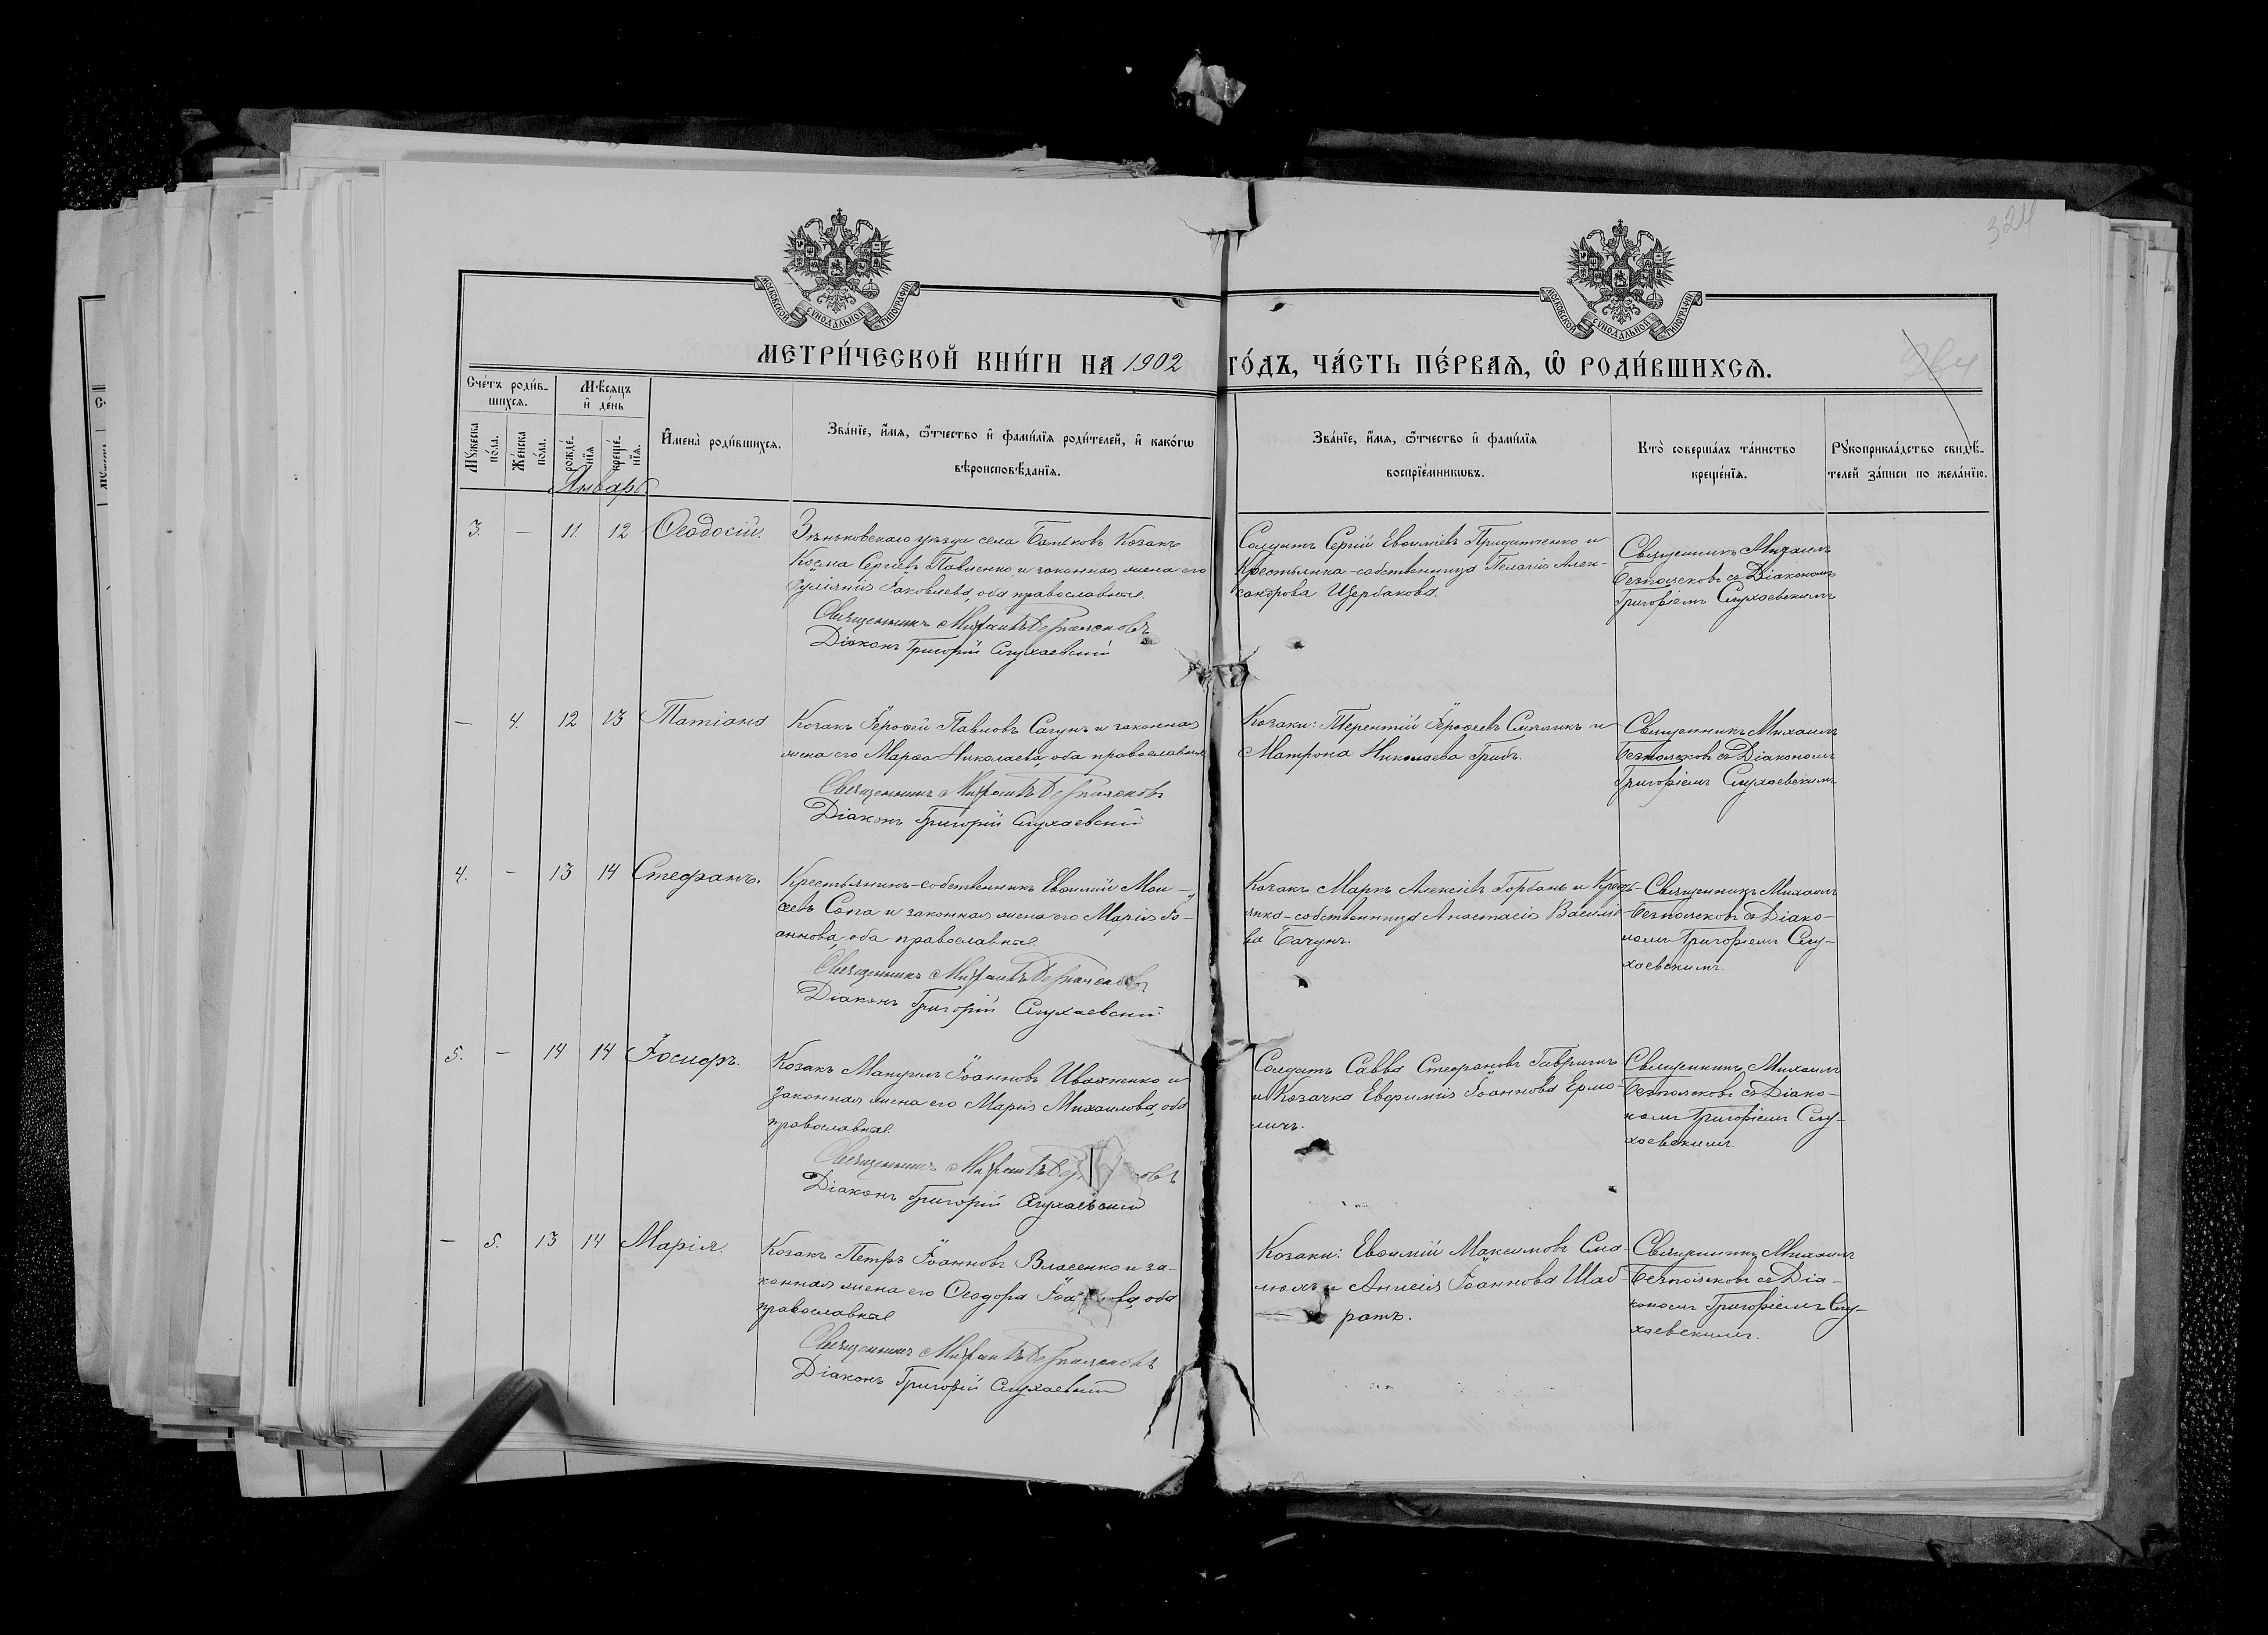 324
МОСКОВСКОЙ СѴНОДАЛЬНОЙ ТИПОГРАФІИ
МОСКОВСКОЙ СѴНОДАЛЬНОЙ ТИПОГРАФІИ
МЕТРИ́ЧЕСКОЙ КНИ́ГИ НА 1902 ГО́ДЪ, ЧА́СТЬ ПЕ́РВАЯ, Ѡ РОДИ́ВШИХСЯ.
Сче́тъ роди́в-
шихся.
Мѣ́сяцъ
и҆ де́нь
Мꙋ́жеска
по́ла.
Же́нска
по́ла.
рожде́-
нїѧ
креще́-
нїѧ.
Январь
И҆мена̀ роди́вшихся.
Зва́нїе, и҆́мѧ, ѻ҆́тчество и҆ фами́лїѧ роди́телей, и҆ како́гѡ
вѣроисповѣ́данїѧ.
Зва́нїе, и҆́мѧ, ѻ҆́тчество и҆ фами́лїѧ
воспрїе́мникѡвъ.
Кто̀ соверша́лъ та́инство
креще́нїѧ.
Рꙋкоприкла́дство свидѣ́-
телей за́писи по жела́нїю.
3. — 11. 12 Ѳеодосій.
Зѣньковскаго уѣзда села Батьковъ Козакъ
Косма Сергіевъ Павленко и законная жена его
Іаковлева, оба православные.
Священникъ Михаилъ Безпалчовъ
Діаконъ Григорій Слухаевскій
Солдатъ Сергій Евѳиміевъ Придатченко и
Крестьянка-собственница Пелагія Алек-
сандрова Щербакова.
Священникъ Михаилъ
Безпалчовъ съ Діакономъ
Григоріемъ Слухаевскимъ
— 4. 12 13 Татіана
Козакъ Іероѳей Павловъ Сагунъ и законная
жена его Марѳа Николаева, оба православные
Священникъ Михаилъ Безпалчовъ
Діаконъ Григорій Слухаевскій
Козаки: Терентій Іероѳеевъ и
Матрона Николаева Грибъ.
Священникъ Михаилъ
Безпалчовъ съ Діакономъ
Григоріемъ Слухаевскимъ
4. — 13 14 Стефанъ.
Крестьянинъ-собственникъ Евѳимій Мои-
сеевъ Сопа и законная жена его Марія Іо-
аннова, оба православные.
Священникъ Михаилъ Безпалчовъ
Діаконъ Григорій Слухаевскій
Козакъ Маркъ Алексіевъ Горбань и Кресть-
янка-собственница Анастасія Василіе-
ва Бачунъ.
Священникъ Михаилъ
Безпалчовъ съ Діако-
номъ Григоріемъ Слу-
хаевскимъ.
5. — 14 14 Іосифъ.
Козакъ Мануилъ Іоанновъ Ивахненко и
законная жена его Марія Михаилова, оба
православные.
Священникъ Михаилъ
Діаконъ Григорій Слухаевскій
Солдатъ Савва Стефановъ Гавришъ
и Козачка Евфимія Іоаннова Ермо-
личъ.
Священникъ Михаилъ
Безпалчовъ съ Діако-
номъ Григоріемъ Слу-
хаевскимъ
— 5. 13 14 Марія.
Козакъ Петръ Іоанновъ Власенко и за-
конная жена его Ѳеодора оба
православные
Священникъ Михаилъ Безпалчовъ
Діаконъ Григорій Слухаевскій
Козаки: Евѳимій Максимовъ Сма-
люхъ и Анисія Іоаннова Шаб-
ратъ.
Священникъ Михаилъ
Безпалчовъ съ Діа-
кономъ Григоріемъ Слу-
хаевскимъ.